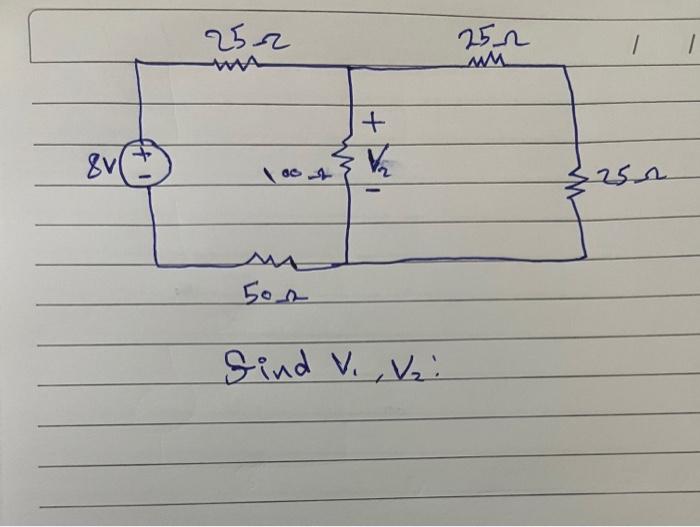 25Ω 25Ω
+
8V + - 100Ω V₂ 25Ω
-
50Ω
find V₁, V₂: